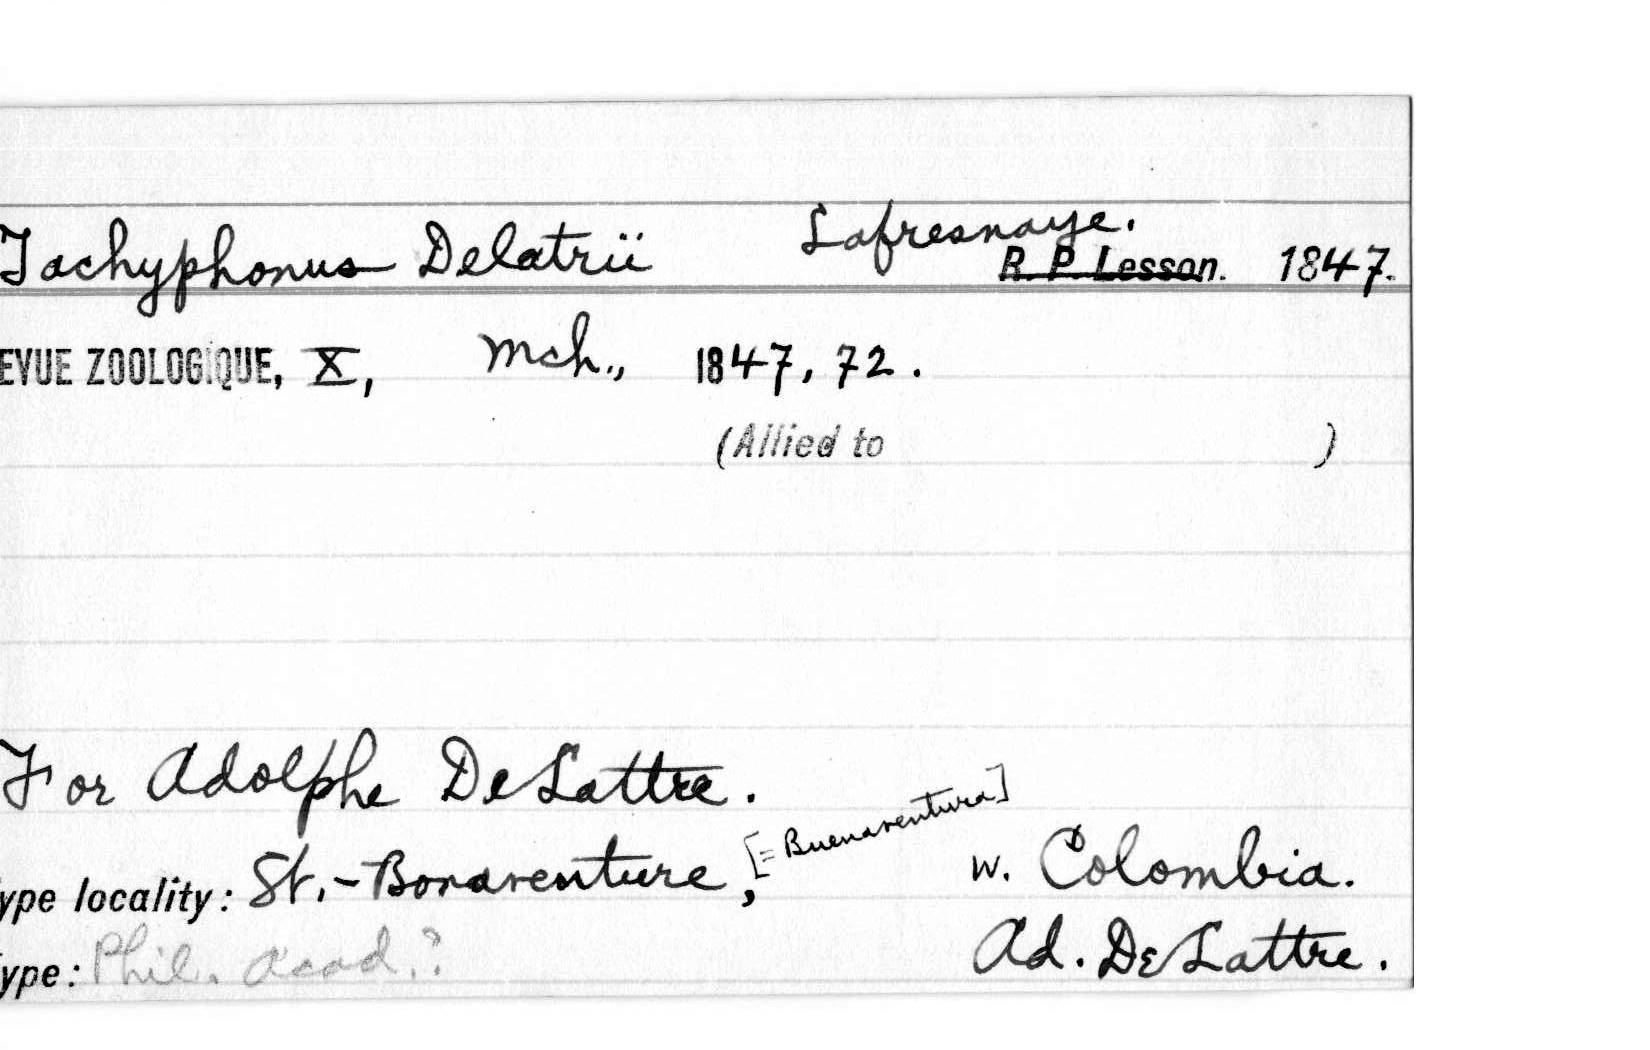 Tachyphonus Delatrii Lafresnaye.
R. P. Lesson. 1847.
EVUE ZOOLOGIQUE, X, Mch., 1847, 72.
(Allied to )
For Adolphe DeLattre.
ype locality: St.-Bonaventure, [= Buenaventura] W. Colombia.
ype: Phil. Acad.? Ad. DeLattre.